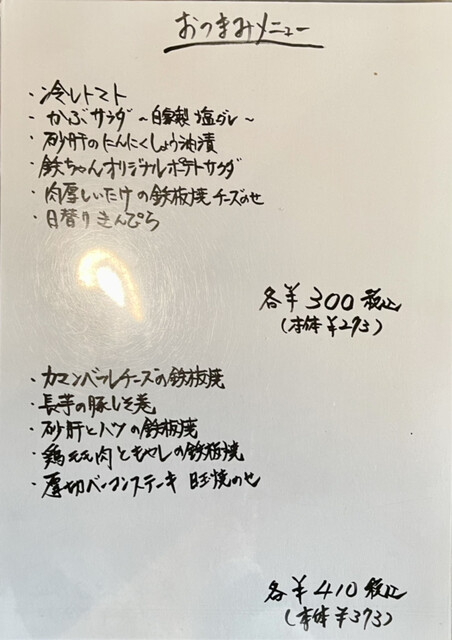 おつまみメニュー
・冷しトマト
・かぶサラダ 〜自家製塩ダレ〜
・砂肝のにんにくしょう油漬
・鉄ちゃんオリジナルポテトサラダ
・肉厚しいたけの鉄板焼チーズのせ
・日替りきんぴら
各¥300税込
(本体¥273)
・カマンベールチーズの鉄板焼
・長芋の豚しそ巻
・砂肝とハツの鉄板焼
・鶏もも肉ともやしの鉄板焼
・厚切ベーコンステーキ 目玉焼のせ
各¥410税込
(本体¥373)